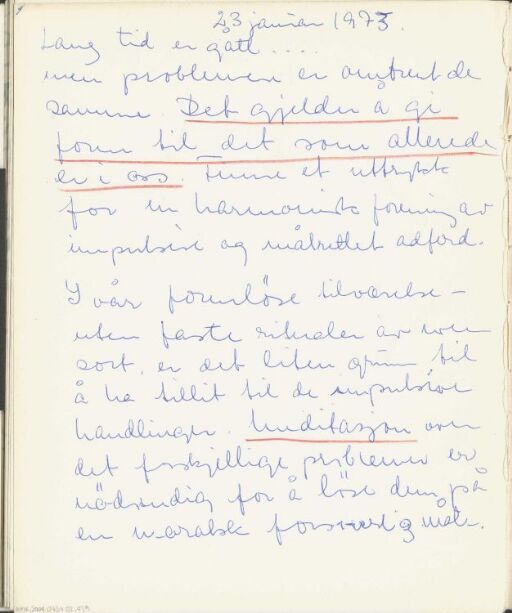 23 januar 1973.
Lang tid er gått .....
men problemene er omtrent de
samme. Det gjelder å gi
form til det som allerede
er i oss. Finne et uttrykk
for en harmonisk forening av
impulsive og målrettet adferd.
I vår formløse tilværelse –
uten faste ritualer av noen
sort, er det liten grunn til
å ha tillit til de impulsive
handlinger. Meditasjon over
det forskjellige problemer er
nödvendig for å löse dem på
en moralsk forsvarlig måte.